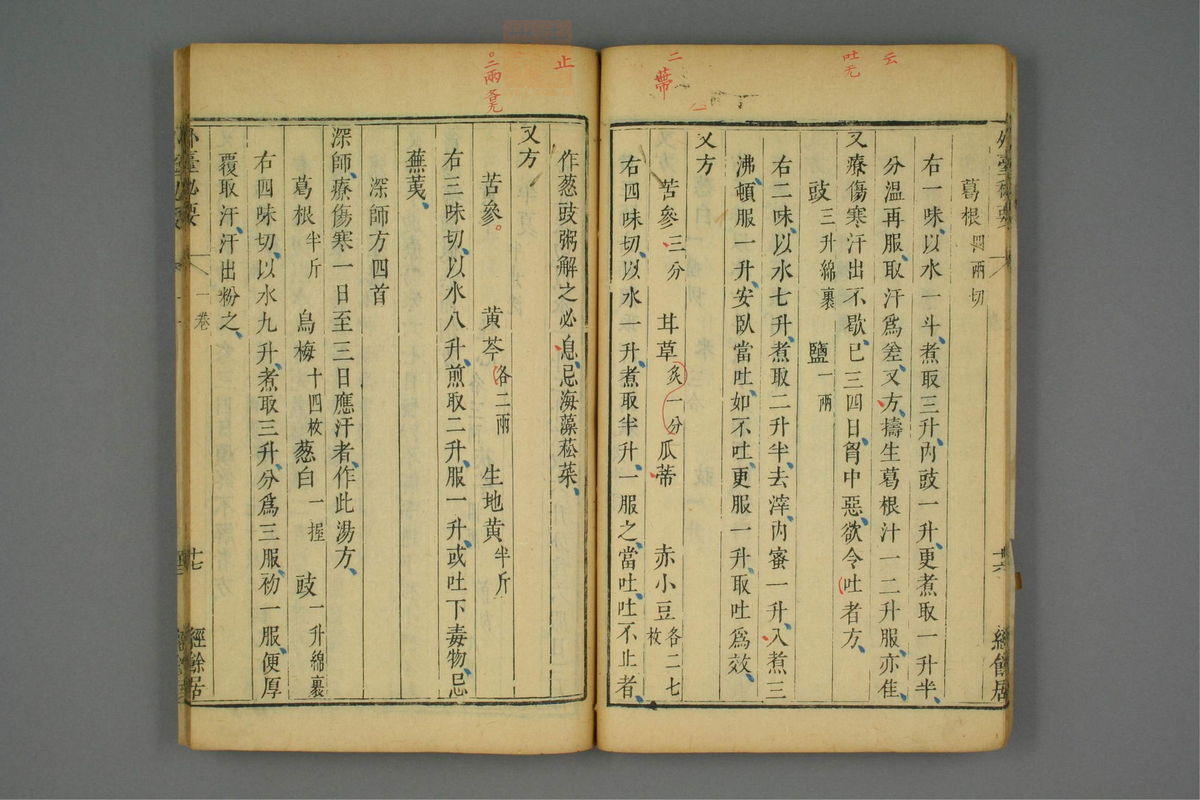 云
吐 无
二
蒂
外臺秘要
一
十六
經餘居
葛根 四兩切
右一味以水一斗煮取三升內豉一升更煮取一升半
分溫再服取汗爲差又方擣生葛根汁一二升服亦佳
又療傷寒汗出不歇已三四日胷中惡欲令吐者方
豉 三升綿裹 鹽 一兩
右二味以水七升煮取二升半去滓內蜜一升入煮三
沸頓服一升安臥當吐如不吐更服一升取吐爲效
又方
苦參 三分 甘草 炙一分 瓜蒂 赤小豆 各二七枚
右四味切以水一升煮取半升一服之當吐吐不止者
止
二兩
作葱豉粥解之必息忌海藻菘菜
又方
苦參 黄芩 各二兩 生地黄 半斤
右三味切以水八升煎取二升服一升或吐下毒物忌
蕪荑
深師方四首
深師療傷寒一日至三日應汗者作此湯方
葛根 半斤 烏梅 十四枚 葱白 一握 豉 一升綿裹
右四味切以水九升煮取三升分爲三服初一服便厚
覆取汗汗出粉之
外臺秘要
一卷
十七
經餘居